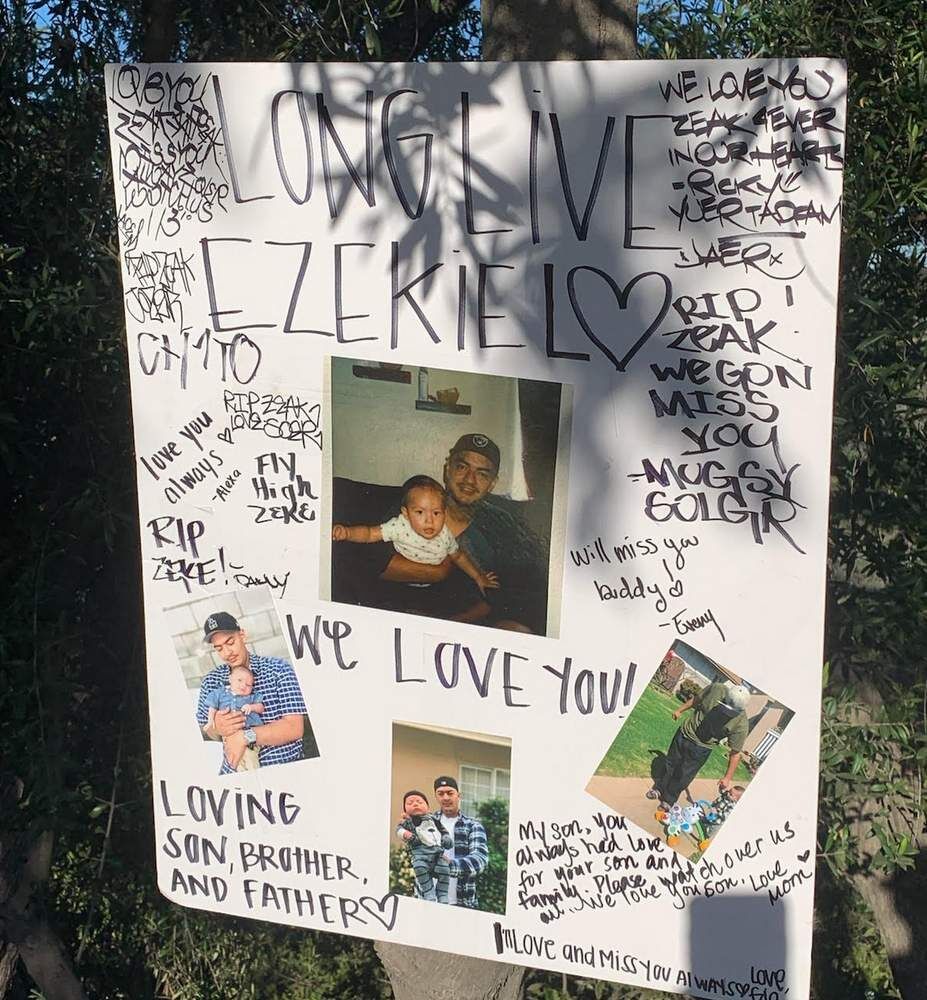 LOVE YOU
LONG LiVE
EZEKiEL
WE LOVE YOU
ZEAK 4EVER
IN OUR HEARTS
-RICKY
JAER
RIP
ZEAK
WE GON
MISS
YOU
-MUGSY
RIP ZEAK
CHITO
RIP ZEAK
LOVE
love you
always
-Alexa
Fly
High
ZEKE
RIP
ZEKE!
Will miss you
buddy!
WE LOVE YOU!
LOViNG
SON, BROTHER,
AND FATHER
My son, you
always had love
for your son and
family. Please watch over us
all... We love you son. Love
Mom
I'll LOVE and MiSS YOU AlWAYS
Love,